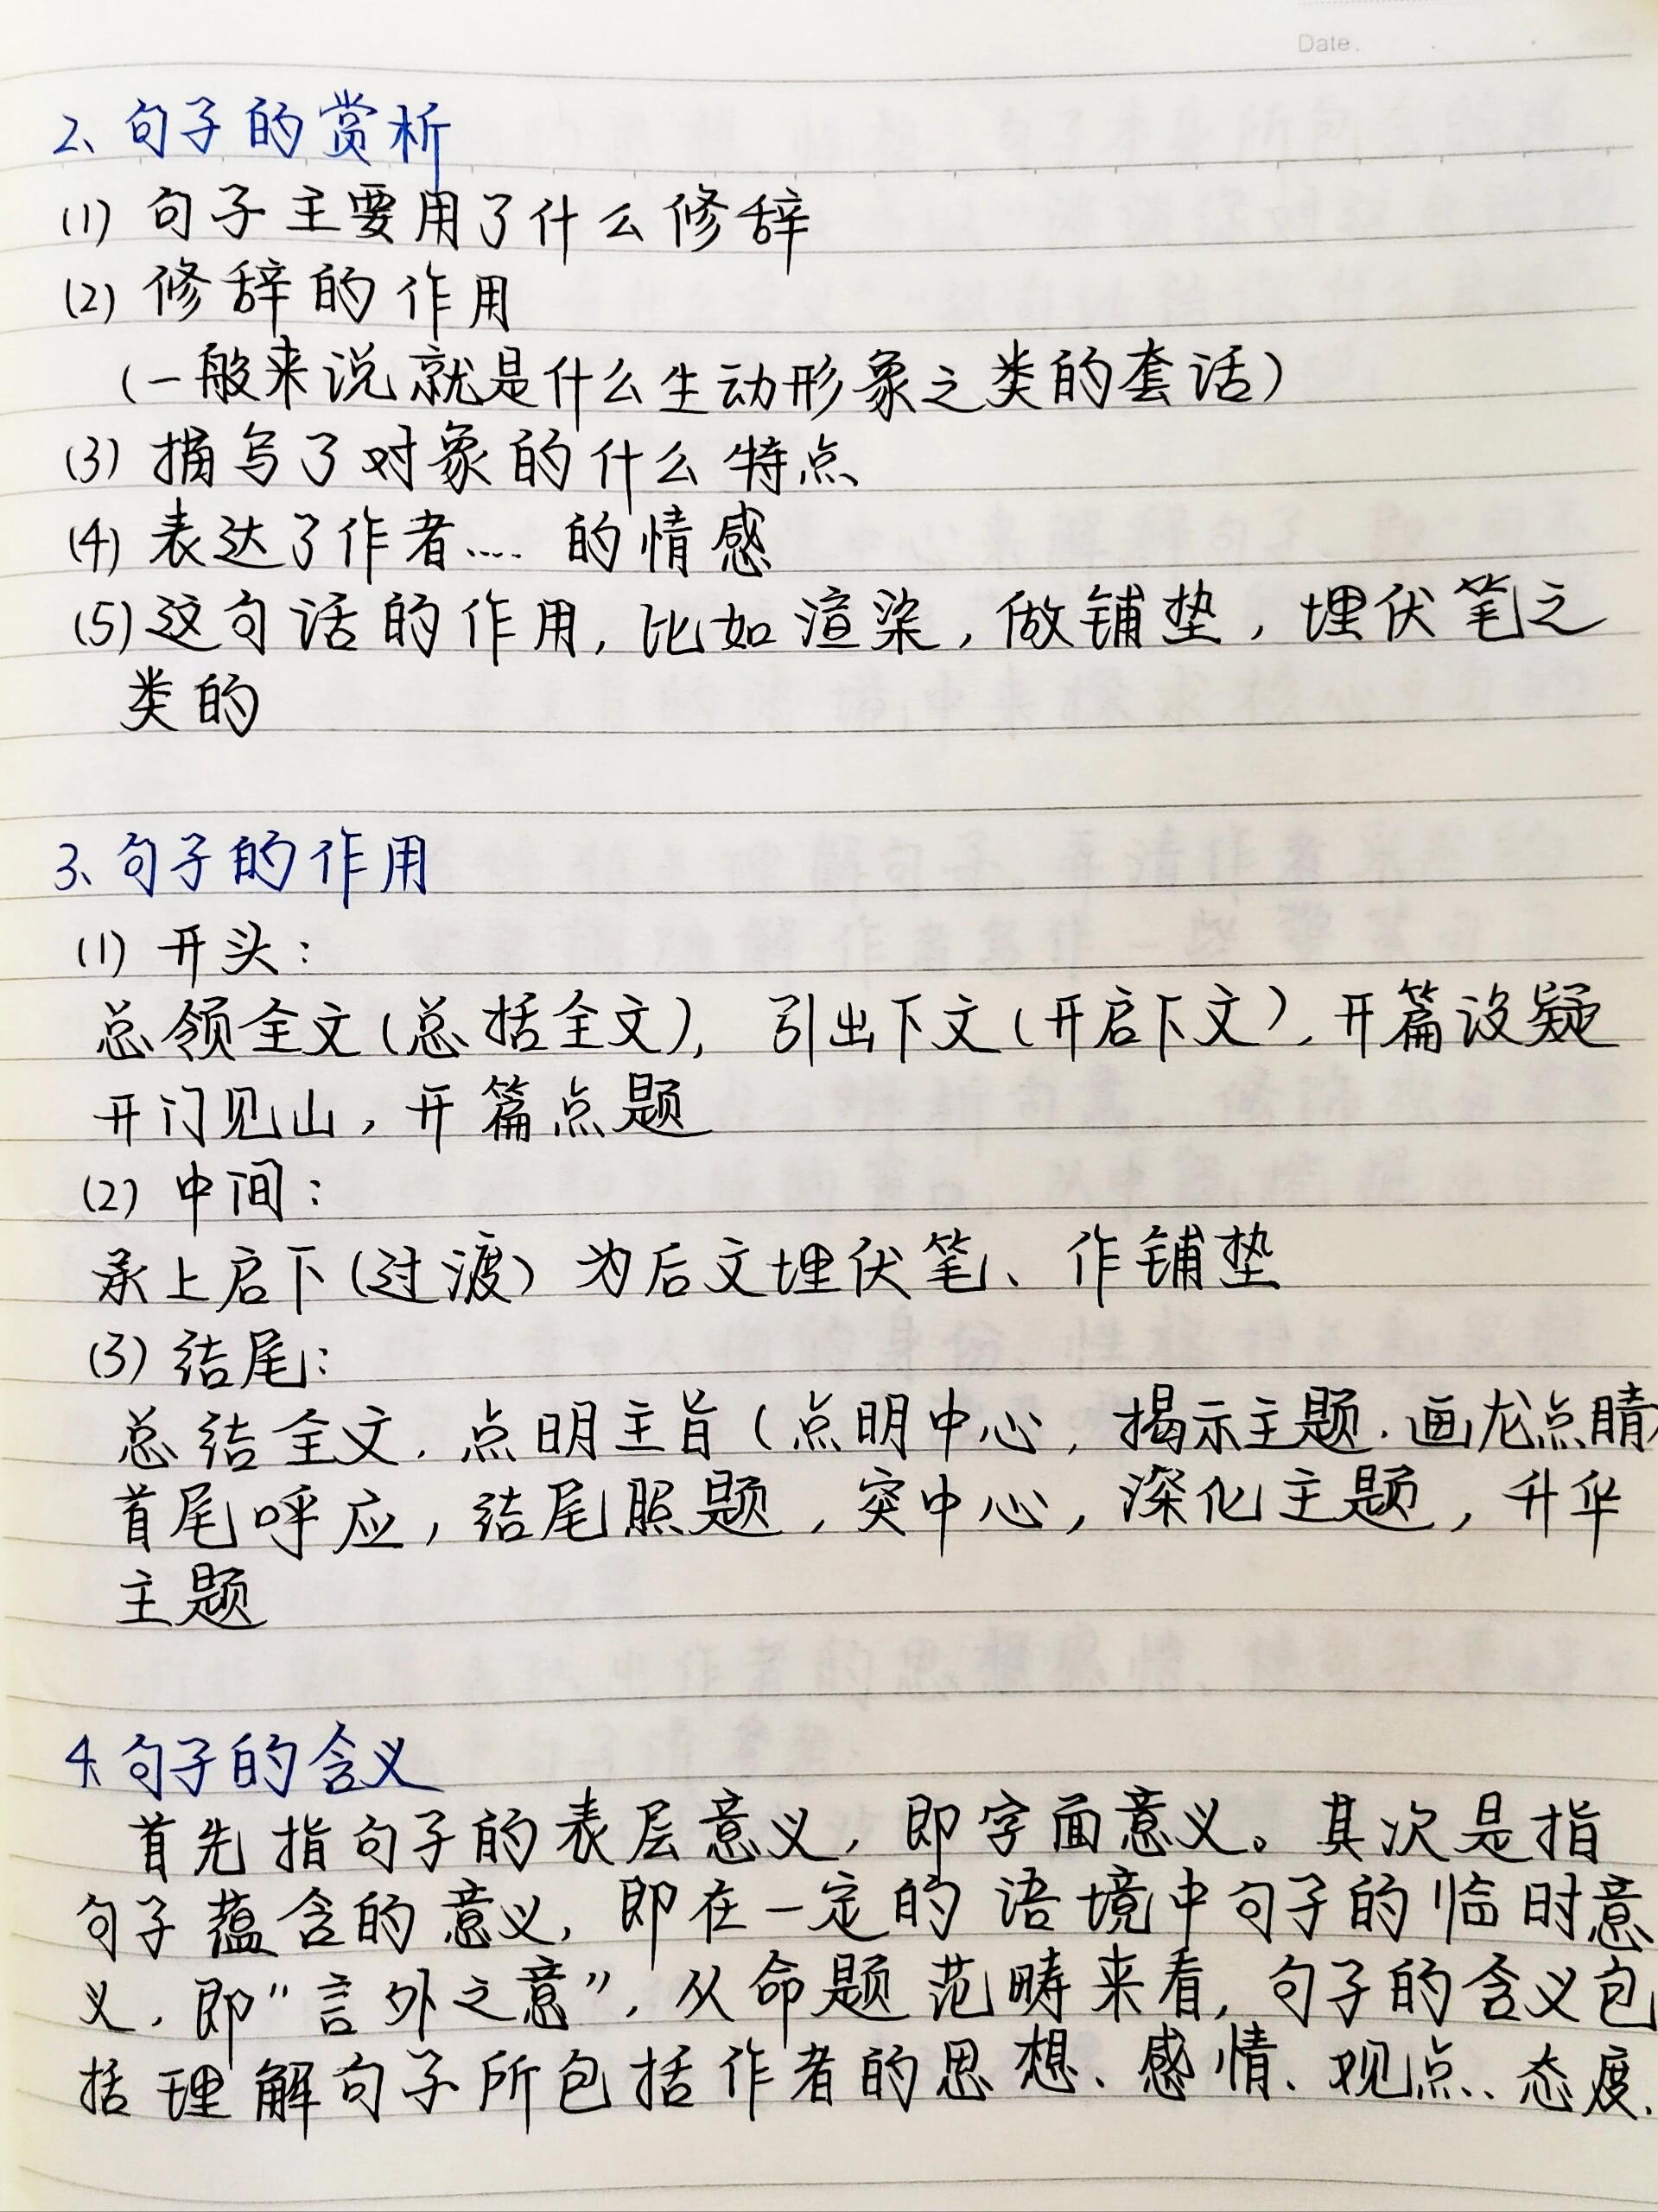 Date.
2、句子的赏析
(1) 句子主要用了什么修辞
(2) 修辞的作用
(一般来说就是什么生动形象之类的套话)
(3) 描写了对象的什么特点
(4) 表达了作者.... 的情感
(5)这句话的作用, 比如渲染, 做铺垫, 埋伏笔之
类的
3、句子的作用
(1) 开头:
总领全文(总括全文), 引出下文(开启下文), 开篇设疑
开门见山, 开篇点题
(2) 中间:
承上启下(过渡) 为后文埋伏笔、作铺垫
(3) 结尾:
总结全文. 点明主旨(点明中心, 揭示主题. 画龙点睛)
首尾呼应, 结尾照题, 突中心, 深化主题, 升华
主题
4、句子的含义
首先指句子的表层意义, 即字面意义。其次是指
句子蕴含的意义, 即在一定的语境中句子的临时意
义, 即"言外之意", 从命题范畴来看, 句子的含义包
括理解句子所包括作者的思想、感情、观点、态度.